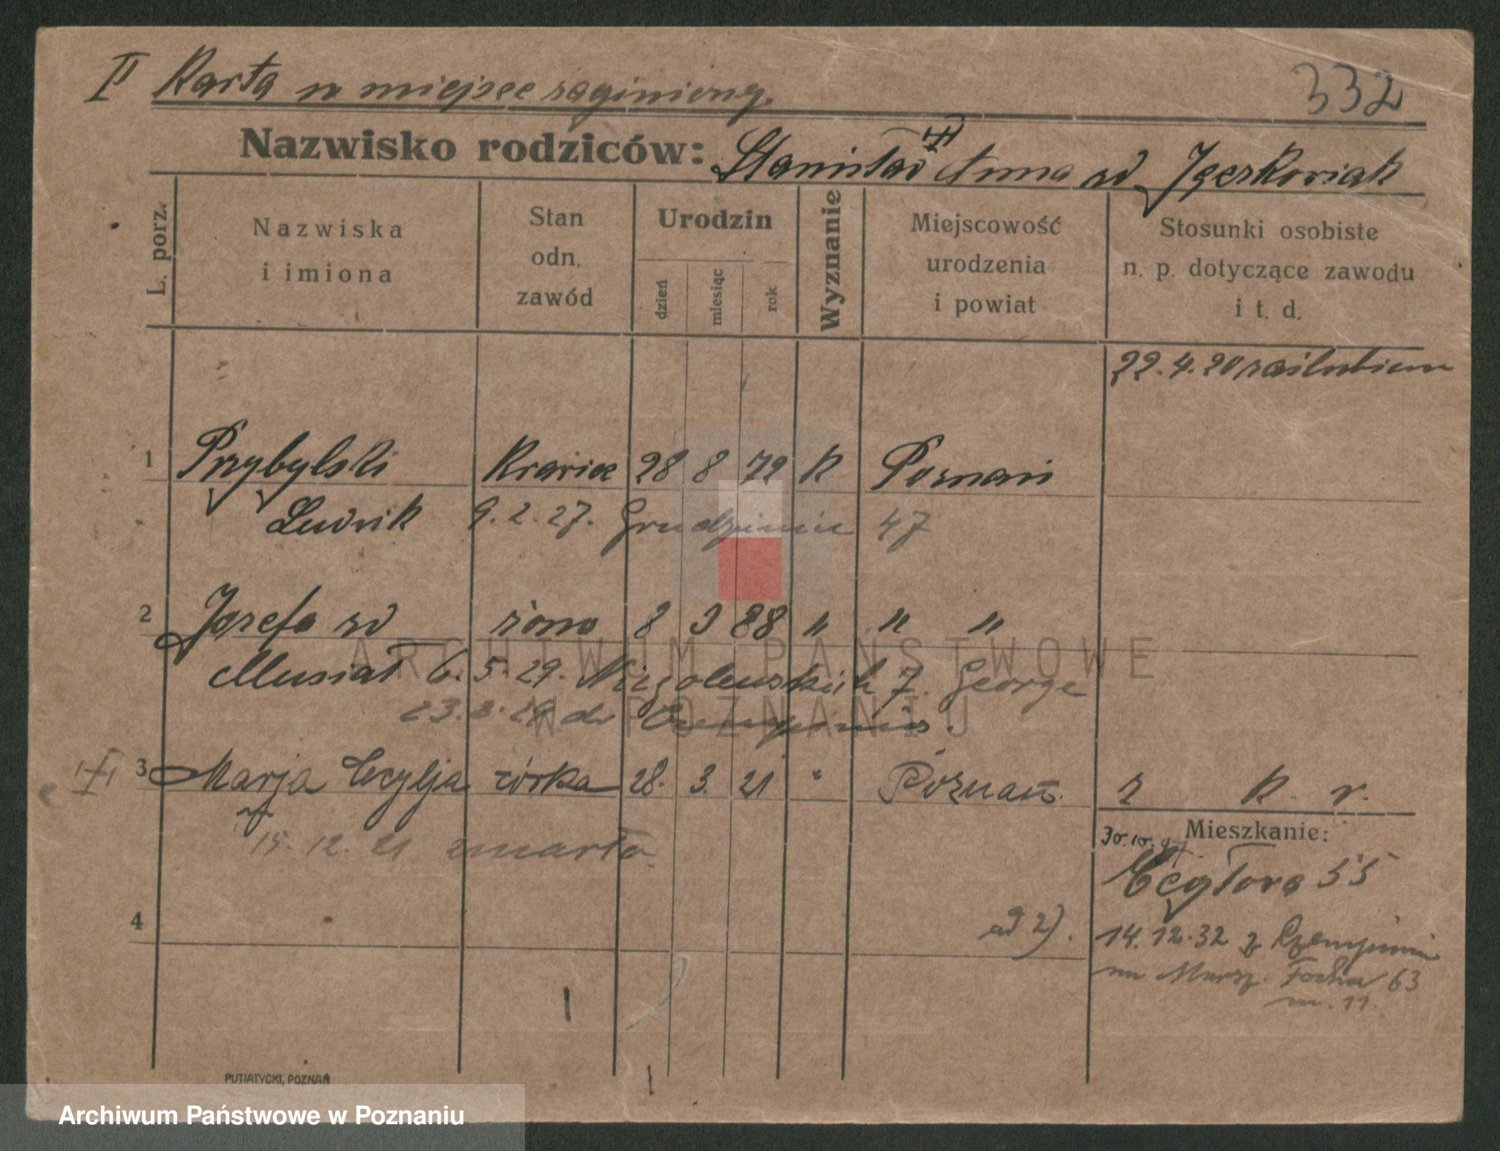 II Karta w miejsce zaginionej.
332
Nazwisko rodziców: Stanisław Anna zd Jęczkowiak
L. porz.
Nazwiska i imiona
Stan odn. zawód
Urodzin
dzień
miesiąc
rok
Wyznanie
Miejscowość urodzenia i powiat
Stosunki osobiste n. p. dotyczące zawodu i t. d.
22.4.20 zaślubieni
1 Przybylski krawiec 28 8 72 k Poznań
Ludwik 9.2.27. 47
2 Józefa zd żona 8 3 88 " " "
Musiał 6.5.29. Niegolewskich 7. George
23.8.29 do Czempinia.
3 Marja Cecylja córka 28. 3. 21 " Poznań. z k. r.
15.12.21 zmarła
Mieszkanie:
30.10.
Ceglova 55
4
ad 2). 14.12.32 z Czempinia
na Marsz. Focha 63
m. 11.
PUTIATYCKI, POZNAŃ
ARCHIWUM PAŃSTWOWE
W POZNANIU
Archiwum Państwowe w Poznaniu